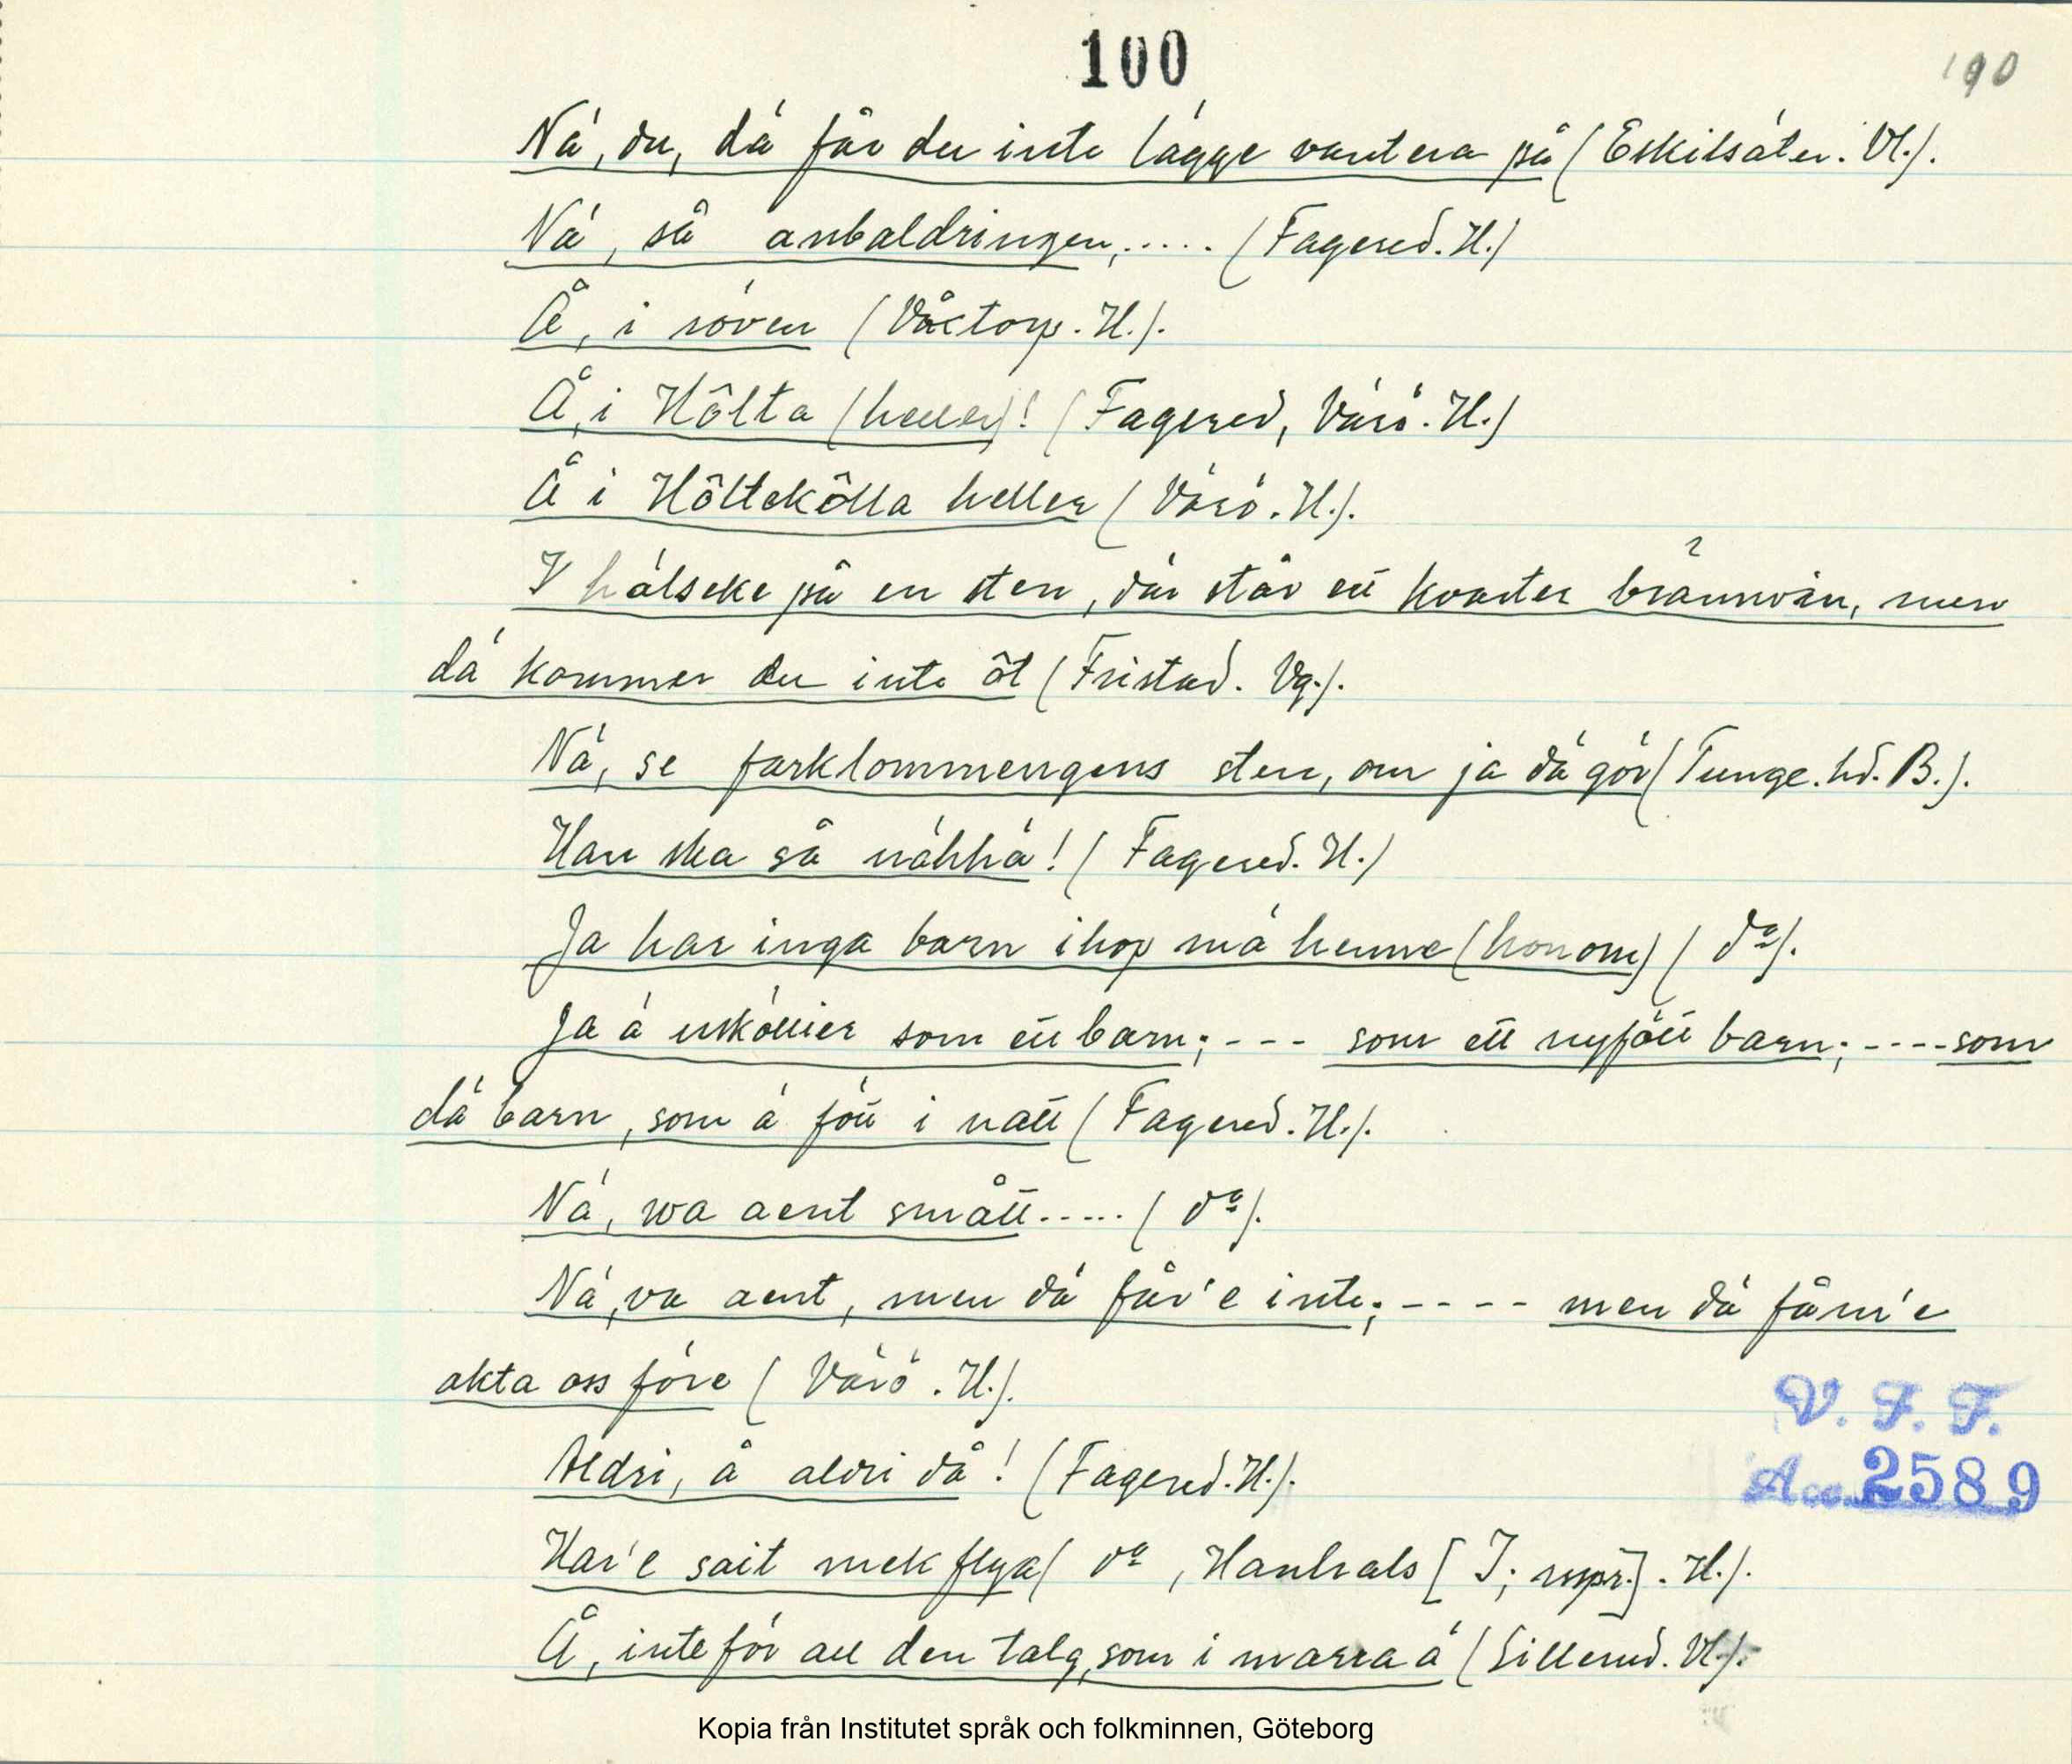 100
190
Nä, du, dä får du inte lägge vantera på (Eskilsäter. Vl.).
Nä, så anbaldringen,..... (Fagered. H.)
Å, i röven (Våxtorp. H.).
Å, i Hôlta (heller)! (Fagered, Värö. H.)
Å i Hôltekôlla heller (Värö. H.).
I hälseke på en sten, där står ett kvarter brännvin, men
dä kommer du inte ôt (Fristad. Vg.).
Nä, se farklommengens sten, om ja dä gör (Tunge. hd. B.).
Han ska så nähhä! (Fagered. H.)
Ja har inga barn ihop mä henne (honom) (do).
Ja ä uskôllier som ett barn; --- som ett nyfött barn; ---- som
dä barn, som ä fött i natt (Fagered. H.).
Nä, wa aent smått..... (do).
Nä, va aent, men dä får'e inte; ---- men dä fåm'e
akta oss före (Värö. H.).
Aldri, å aldri då! (Fagered. H.).
Har'e sait mek flyga (do, Hanhals [I; uspr.]. H.).
Å, inte för all den talg, som i marra ä (Sillerud. Vl.).
V. F. F.
Acc. 2589
Kopia från Institutet språk och folkminnen, Göteborg